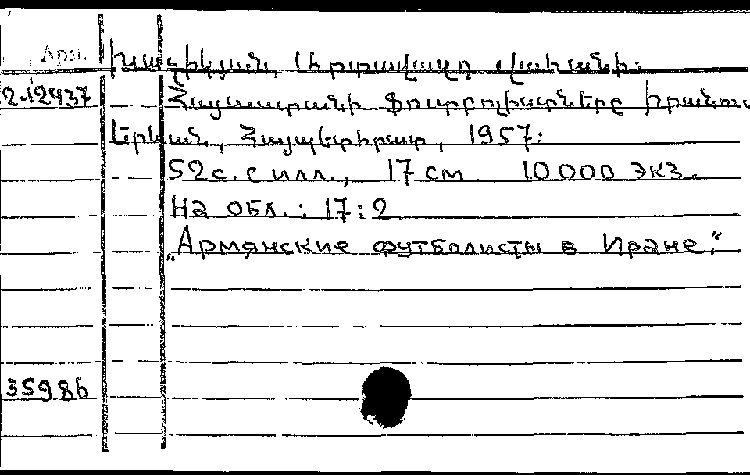 Арм.
Խաչիկյան, Արտավազդ Վահանի:
2.12937 Հայաստանի ֆուտբոլիստները Իրանում
Երևան, Հայպետհրատ, 1957:
52 с. с илл., 17 см 10 000 экз.
На обл.: 17:2
„Армянские футболисты в Иране“
35986